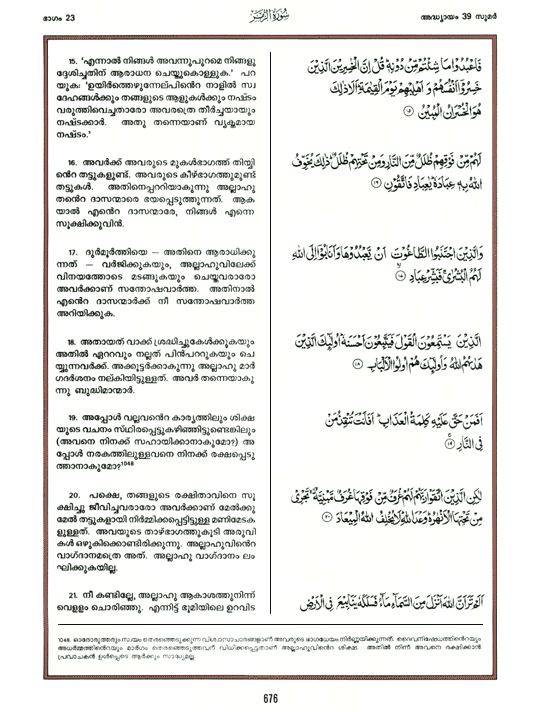 ഭാഗം 23
سُورَةُ الزُّمَر
അദ്ധ്യായം 39 സുമർ
15. ‘എന്നാൽ നിങ്ങൾ അവന്നുപുറമെ നിങ്ങളു
ദ്ദേശിച്ചതിന് ആരാധന ചെയ്തുകൊള്ളുക.’ പറ
യുക: ‘ഉയിർത്തെഴുന്നേല്പിൻെറ നാളിൽ സ്വ
ദേഹങ്ങൾക്കും തങ്ങളുടെ ആളുകൾക്കും നഷ്ടം
വരുത്തിവെച്ചതാരോ അവരത്രെ തീർച്ചയായും
നഷ്ടക്കാർ. അതു തന്നെയാണ് വ്യക്തമായ
നഷ്ടം.’
16. അവർക്ക് അവരുടെ മുകൾഭാഗത്ത് തിയ്യി
ൻെറ തട്ടുകളുണ്ട്. അവരുടെ കീഴ്ഭാഗത്തുമുണ്ട്
തട്ടുകൾ. അതിനെപ്പററിയാകുന്നു അല്ലാഹു
തൻെറ ദാസന്മാരെ ഭയപ്പെടുത്തുന്നത്. ആക
യാൽ എൻെറ ദാസന്മാരേ, നിങ്ങൾ എന്നെ
സൂക്ഷിക്കുവിൻ.
17. ദുർമൂർത്തിയെ — അതിനെ ആരാധിക്കു
ന്നത് — വർജിക്കുകയും, അല്ലാഹുവിലേക്ക്
വിനയത്തോടെ മടങ്ങുകയും ചെയ്തവരാരോ
അവർക്കാണ് സന്തോഷവാർത്ത. അതിനാൽ
എൻെറ ദാസന്മാർക്ക് നീ സന്തോഷവാർത്ത
അറിയിക്കുക.
18. അതായത് വാക്ക് ശ്രദ്ധിച്ചുകേൾക്കുകയും
അതിൽ ഏററവും നല്ലത് പിൻപററുകയും ചെ
യ്യുന്നവർക്ക്. അക്കൂട്ടർക്കാകുന്നു അല്ലാഹു മാർ
ഗദർശനം നല്കിയിട്ടുള്ളത്. അവർ തന്നെയാകു
ന്നു ബുദ്ധിമാന്മാർ.
19. അപ്പോൾ വല്ലവൻെറ കാര്യത്തിലും ശിക്ഷ
യുടെ വചനം സ്ഥിരപ്പെട്ടുകഴിഞ്ഞിട്ടുണ്ടെങ്കിലും
(അവനെ നിനക്ക് സഹായിക്കാനാകുമോ?) അ
പ്പോൾ നരകത്തിലുള്ളവനെ നിനക്ക് രക്ഷപ്പെടു
ത്താനാകുമോ?1048
20. പക്ഷെ, തങ്ങളുടെ രക്ഷിതാവിനെ സൂ
ക്ഷിച്ചു ജീവിച്ചവരാരോ അവർക്കാണ് മേൽക്കു
മേൽ തട്ടുകളായി നിർമ്മിക്കപ്പെട്ടിട്ടുള്ള മണിമേടക
ളുള്ളത്. അവയുടെ താഴ്ഭാഗത്തുകൂടി അരുവി
കൾ ഒഴുകിക്കൊണ്ടിരിക്കുന്നു. അല്ലാഹുവിൻെറ
വാഗ്ദാനമത്രെ അത്. അല്ലാഹു വാഗ്ദാനം ലം
ഘിക്കുകയില്ല.
21. നീ കണ്ടില്ലേ, അല്ലാഹു ആകാശത്തുനിന്ന്
വെളളം ചൊരിഞ്ഞു. എന്നിട്ട് ഭൂമിയിലെ ഉറവിട
فَاعْبُدُوا مَا شِئْتُمْ مِنْ دُونِهِ قُلْ إِنَّ الْخَاسِرِينَ الَّذِينَ
خَسِرُوا أَنْفُسَهُمْ وَأَهْلِيهِمْ يَوْمَ الْقِيَامَةِ أَلَا ذَلِكَ
هُوَ الْخُسْرَانُ الْمُبِينُ ١٥
لَهُمْ مِنْ فَوْقِهِمْ ظُلَلٌ مِنَ النَّارِ وَمِنْ تَحْتِهِمْ ظُلَلٌ ذَلِكَ يُخَوِّفُ
اللَّهُ بِهِ عِبَادَهُ يَا عِبَادِ فَاتَّقُونِ ١٦
وَالَّذِينَ اجْتَنَبُوا الطَّاغُوتَ أَنْ يَعْبُدُوهَا وَأَنَابُوا إِلَى اللَّهِ
لَهُمُ الْبُشْرَى فَبَشِّرْ عِبَادِ ١٧
الَّذِينَ يَسْتَمِعُونَ الْقَوْلَ فَيَتَّبِعُونَ أَحْسَنَهُ أُولَئِكَ الَّذِينَ
هَدَاهُمُ اللَّهُ وَأُولَئِكَ هُمْ أُولُو الْأَلْبَابِ ١٨
أَفَمَنْ حَقَّ عَلَيْهِ كَلِمَةُ الْعَذَابِ أَفَأَنْتَ تُنْقِذُ مَنْ
فِي النَّارِ ١٩
لَكِنِ الَّذِينَ اتَّقَوْا رَبَّهُمْ لَهُمْ غُرَفٌ مِنْ فَوْقِهَا غُرَفٌ مَبْنِيَّةٌ تَجْرِي
مِنْ تَحْتِهَا الْأَنْهَارُ وَعْدَ اللَّهِ لَا يُخْلِفُ اللَّهُ الْمِيعَادَ ٢٠
أَلَمْ تَرَ أَنَّ اللَّهَ أَنْزَلَ مِنَ السَّمَاءِ مَاءً فَسَلَكَهُ يَنَابِيعَ فِي الْأَرْضِ
1048. ഓരോരുത്തരും സ്വയം തെരഞ്ഞെടുക്കുന്ന വിശ്വാസാചാരങ്ങളാണ് അവരുടെ ഭാഗധേയം നിർണ്ണയിക്കുന്നത്. ദൈവനിഷേധത്തിൻെറയും
അധർമ്മത്തിൻെറയും മാർഗം തെരഞ്ഞെടുത്തവന് വിധിക്കപ്പെട്ടതാണ് അല്ലാഹുവിൻെറ ശിക്ഷ. അതിൽ നിന്ന് അവനെ രക്ഷിക്കാൻ
പ്രവാചകൻ ഉൾപ്പെടെ ആർക്കും സാദ്ധ്യമല്ല.
676